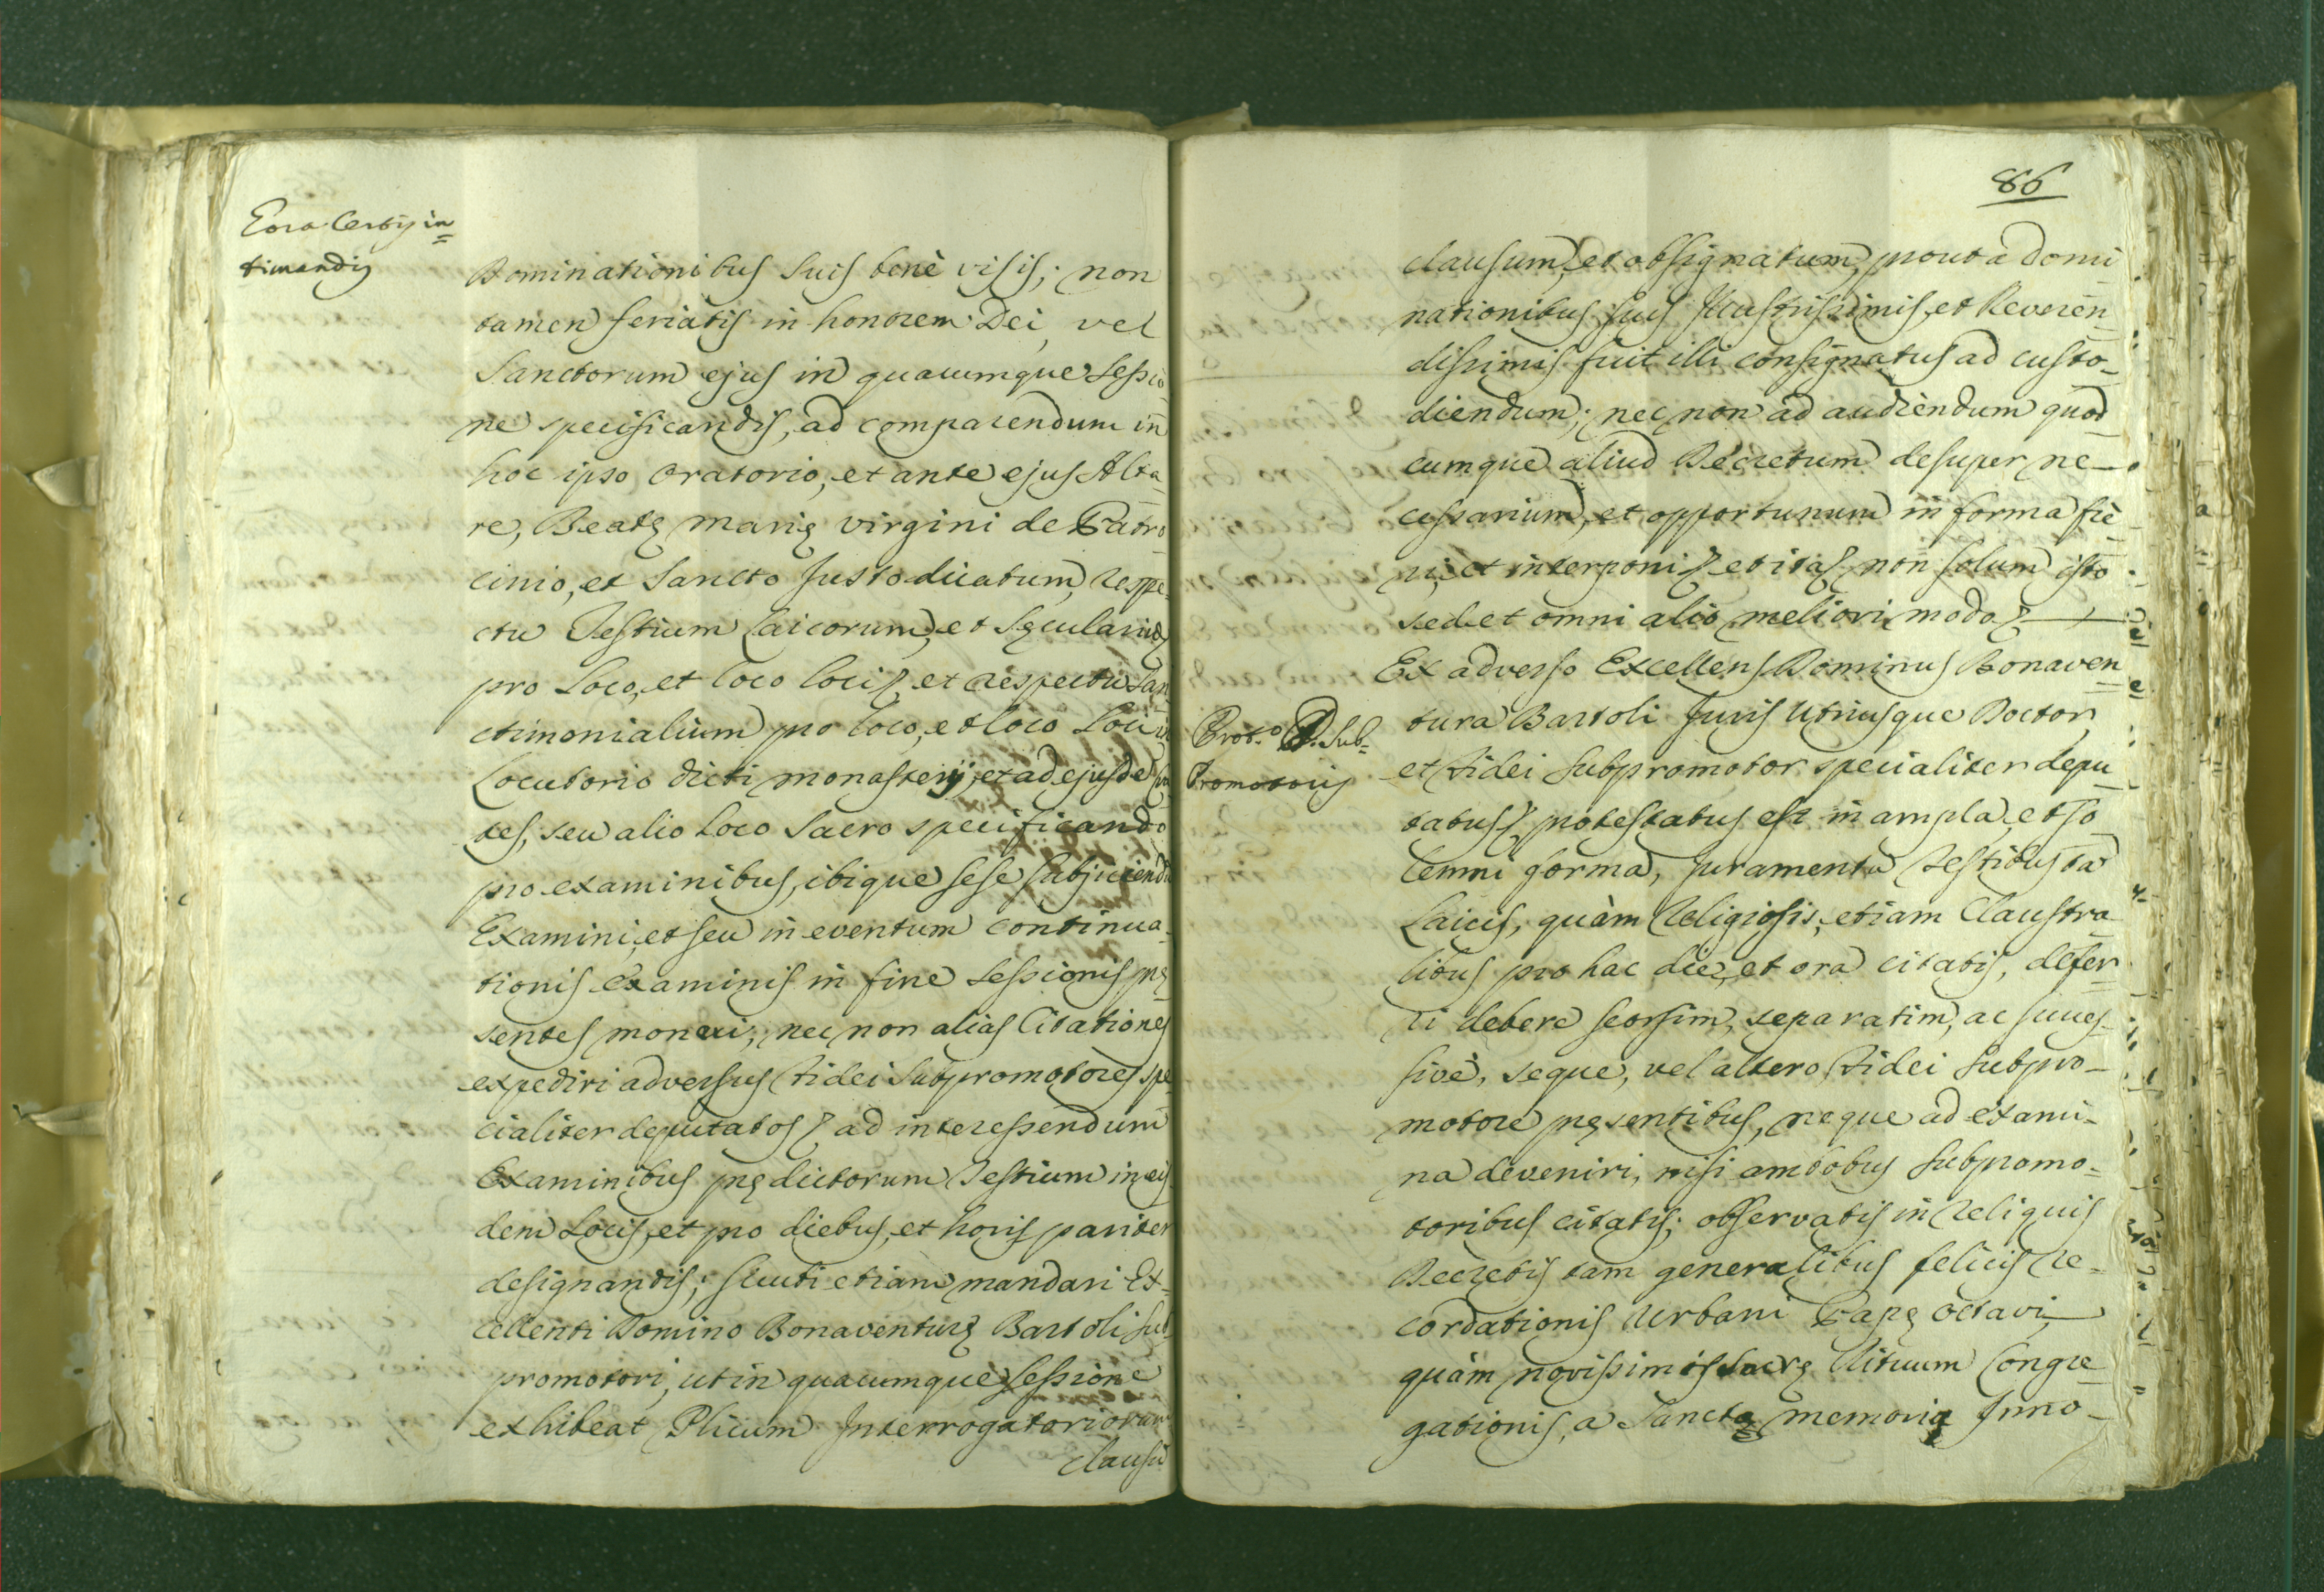 Dominationibus suis benè visis; non
tamen feriatis in honorem Dei, vel
Sanctorum ejus in quacumque sessio
ne specificandis, ad comparendum in
hoc ipso Oratorio, et ante ejus Alta
re, Beatę Marię Virgini de Patro
cinio, et Sancto Justo dicatum, respe
ctu Testium Laicorum, et Sęcularium
pro Loco, et loco loci, et respectu San
ctimonialium pro loco, et loco loci in
Locutorio dicti Monasterij, et ad ejusdem
tes, seu alio Loco Sacro specificando
pro examinibus, ibique sese subjiciendũ
Examini, et seu in eventum continua
tionis examinis in fine sessionis prę
sentes moneri; nec non alias Citationes
expediri adversus Fidei Subpromotores spe
cialiter deputatos ad interessendum
Examinibus prędictorum Testium in eis
dem Locis, et pro diebus, et horis pariter
designandis; sicuti etiam mandari Ex-
cellenti Domino Bonaventurę Bartoli sub
promotori, ut in quacumque sessione
exhibeat Plicum Interrogatoriorum
clausũ
timandis
86
clausum, et obsignatum, prout a Domi
nationibus suis Illustrissimis, et Reveren
dissimis fuit illi consignatus ad custo-
diendum; nec non ad audiendum quod
cumque aliud Decretum desuper ne-
cessarium, et opportunum in forma fie
ri, et interponi et ita non solum isto
sed et omni alio meliori modo
Ex adverso Excellens Dominus Bonaven
tura Bartoli Juris Utriusque Doctor
et Fidei Subpromotor specialiter depu
tatus, protestatus est in ampla, et so
lemni forma, juramenta Testibus tã
Laicis, quàm Religiosis, etiam Claustra
libus pro hac die, et ora citatis, defer
ri debere seorsim, separatim, ac succes-
sivè, seque, vel altero Fidei Subpro-
motore pręsentibus, neque ad exami-
na deveniri, nisi ambobus Subpromo-
toribus citatis; observatis in reliquis
Decretis tam generalibus felicis re-
cordationis Urbani Papę Octavi,
quàm novissimis Sacrę Rituum Congre
gationis, a Sanctę memorię Inno-
Prot.º D. Sub=
Promotoris